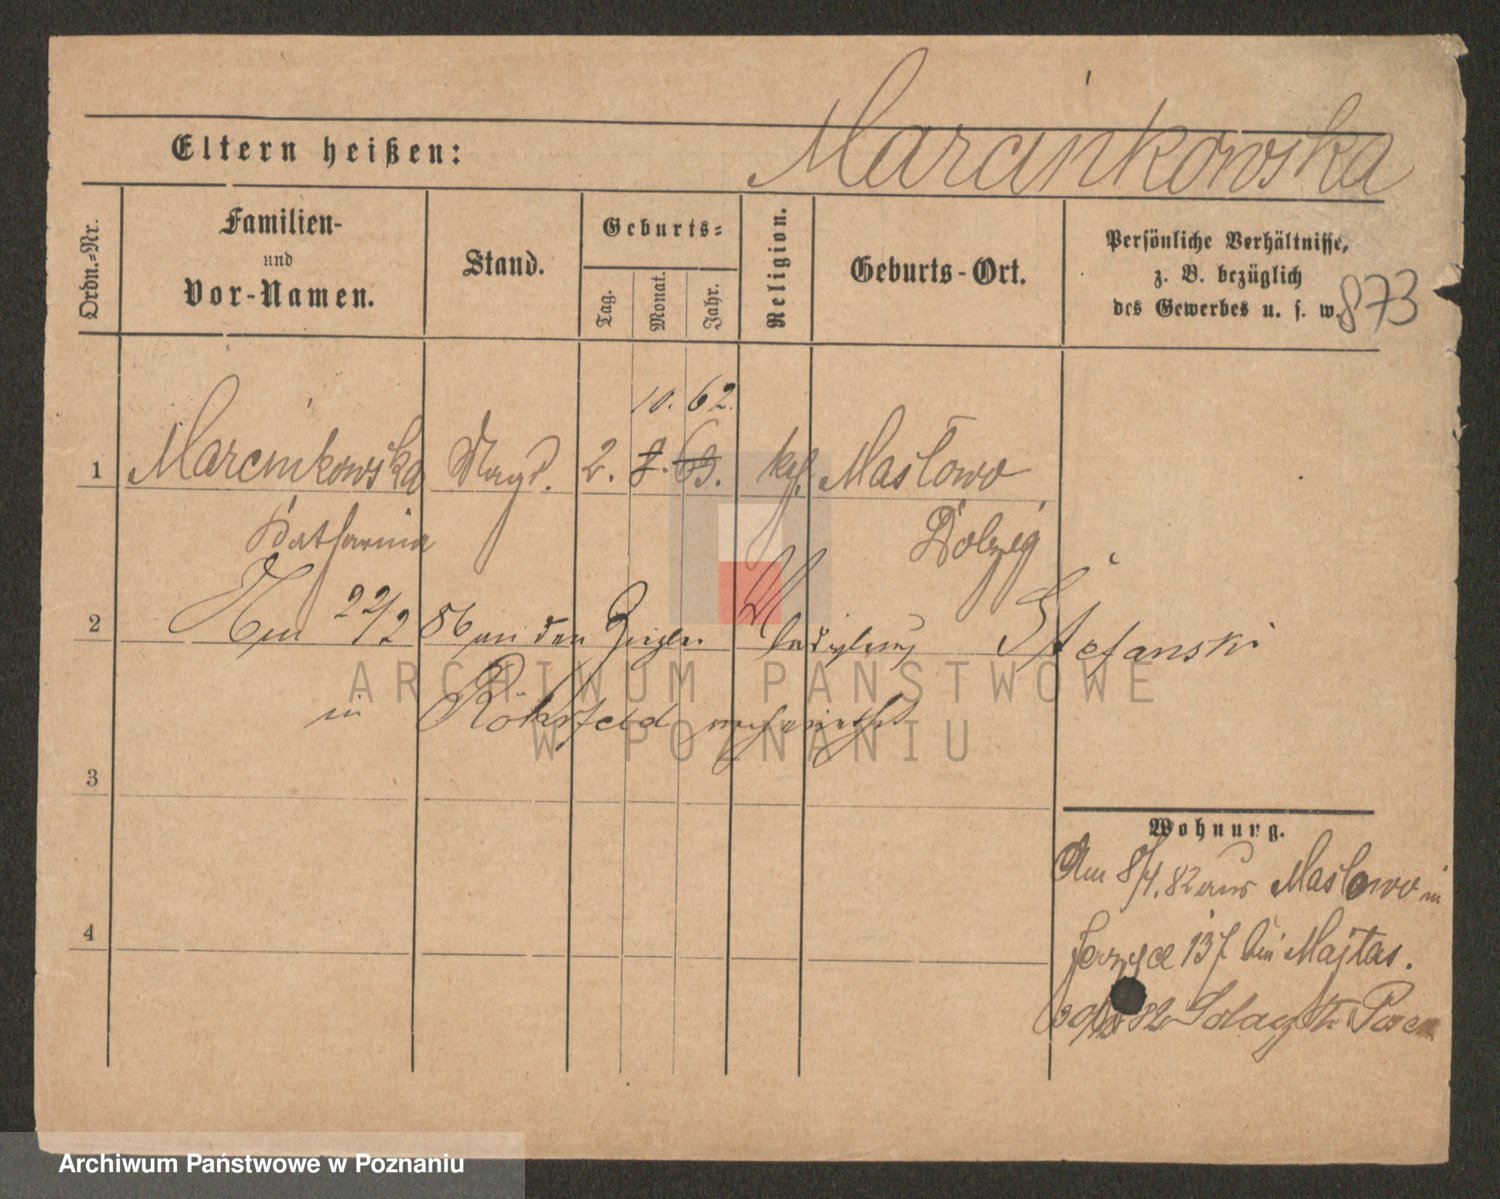 Marcinkowska
Eltern heißen:
Ordn.-Nr.
Familien-
und
Vor-Namen.
Stand.
Geburts-
Tag.
Monat.
Jahr.
Religion.
Geburts-Ort.
Persönliche Verhältnisse,
z. B. bezüglich
des Gewerbes u. s. w.
873
10. 62.
1 Marcinkowska Magd. 2. 8. 63. kath. Masłowo
Katharina Dolzig
2 Am 22/2 86 an den Ziegler Stefanski
in Röhrfeld verheirathet
ARCHIWUM PAŃSTWOWE
W POZNANIU
3
4
Wohnung.
Am 8/4. 82 aus Masłowo in
Jerzyce 137 bei Majtas.
30/ 82 Posen
Archiwum Państwowe w Poznaniu